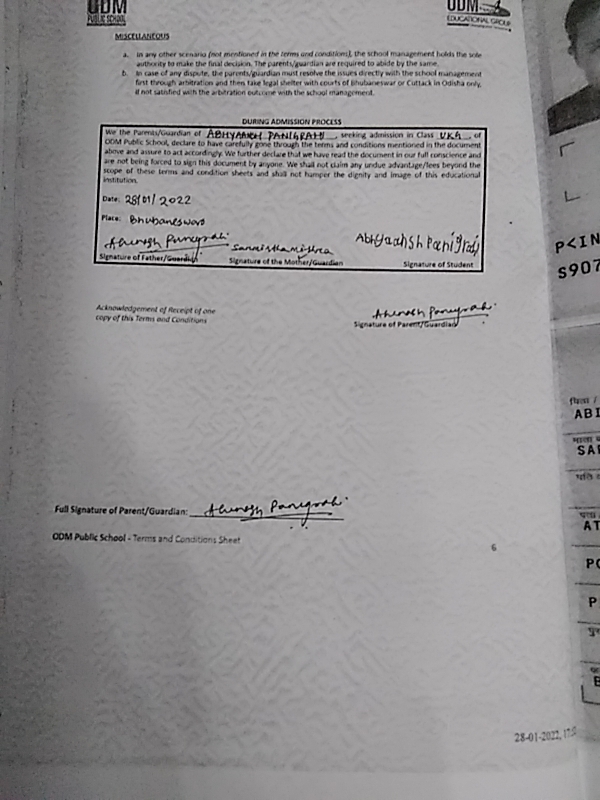 ODM
PUBLIC SCHOOL
ODM
EDUCATIONAL GROUP
MISCELLANEOUS
a. In any other scenario (not mentioned in the terms and conditions), the school management holds the sole
authority to make the final decision. The parents/guardian are required to abide by the same.
b. In case of any dispute, the parents/guardian must resolve the issues directly with the school management
first through arbitration and then take legal shelter with courts of Bhubaneswar or Cuttack in Odisha only,
if not satisfied with the arbitration outcome with the school management.
DURING ADMISSION PROCESS
We the Parents/Guardian of ABHYAANSH PANIGRAHI, seeking admission in Class UKG, of
ODM Public School, declare to have carefully gone through the terms and conditions mentioned in the document
above and assure to act accordingly. We further declare that we have read the document in our full conscience and
are not being forced to sign this document by anyone. We shall not claim any undue advantage/fees beyond the
scope of these terms and condition sheets and shall not hamper the dignity and image of this educational
institution.
Date: 28/01/2022
Place: Bhubaneswar
Abinash Panigrahi Sarmistha Mishra Abhyaansh Panigrahi
Signature of Father/Guardian Signature of the Mother/Guardian Signature of Student
Acknowledgement of Receipt of one
copy of this Terms and Conditions
Abinash Panigrahi
Signature of Parent/Guardian
Full Signature of Parent/Guardian: Abinash Panigrahi
ODM Public School - Terms and Conditions Sheet
6
28-01-2022, 17:
P<IN
S907
पिता /
ABI
माता
SA
पति
AT
PO
P